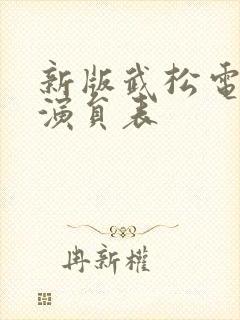 新版武松電
演員表
冉新權